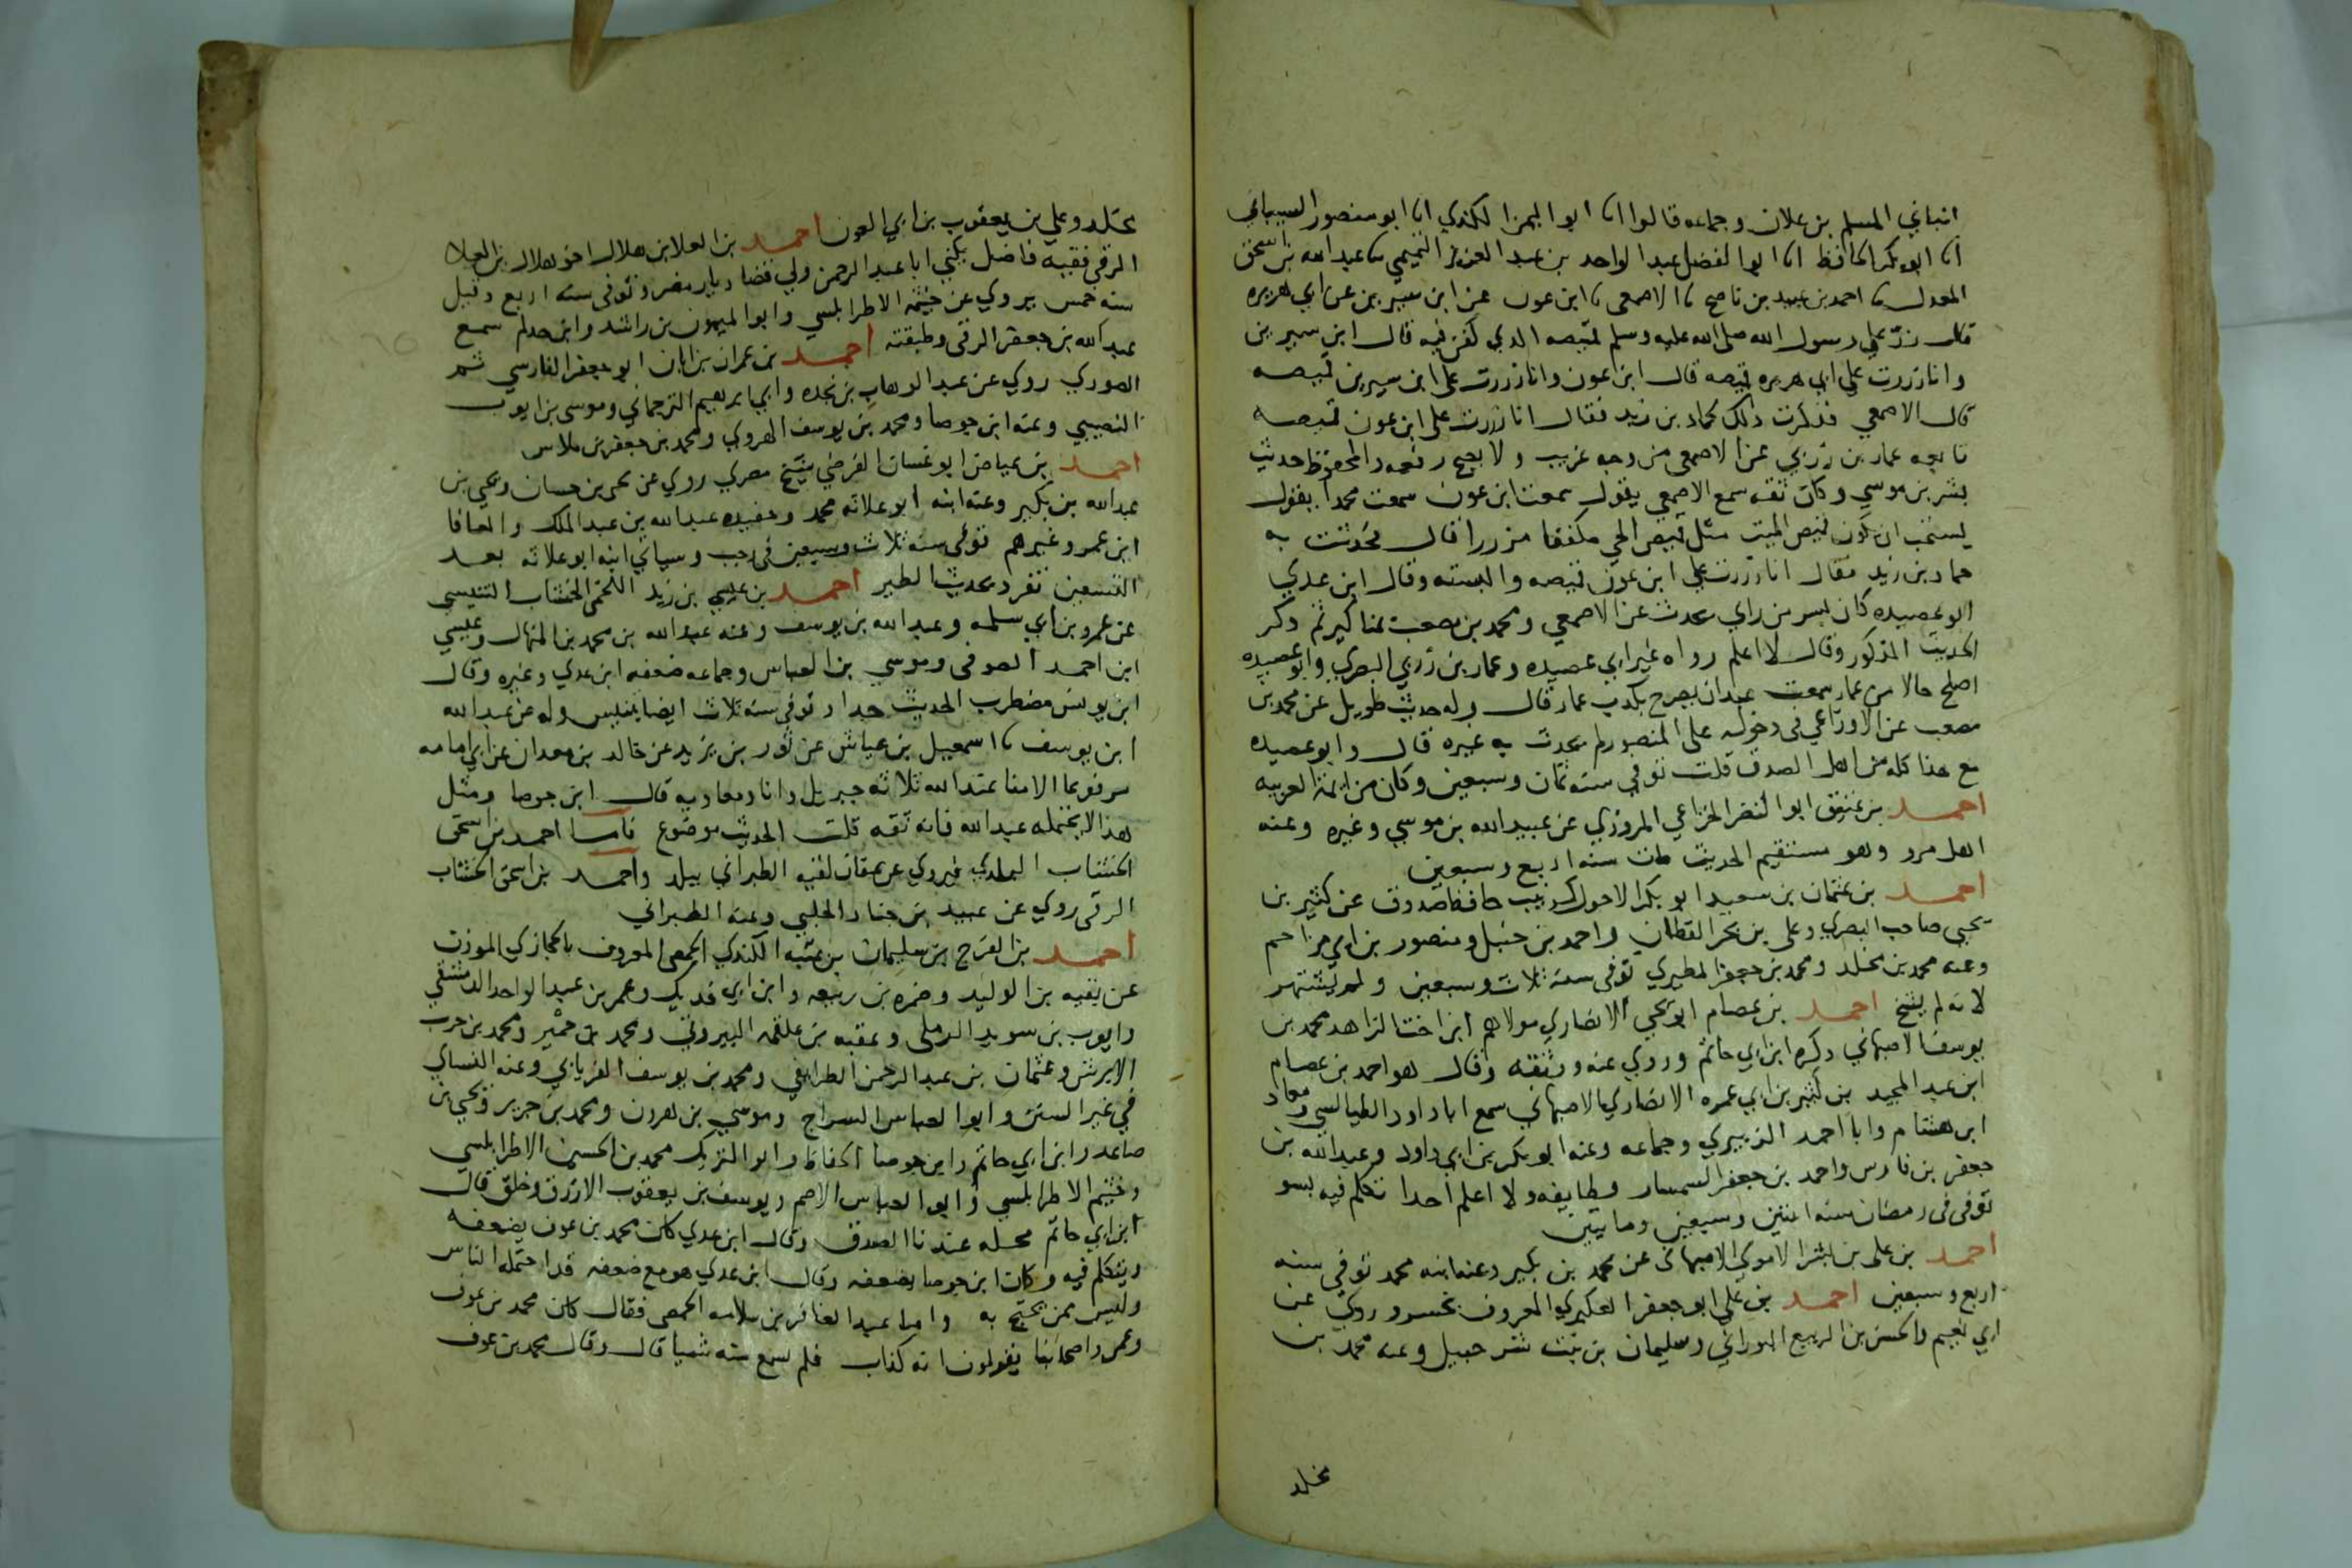 انباني المسلم بن علان وجماعه قالوا انا ابو اليمن الكندي انا ابو منصور الشيباني
انا ابو بكر الحافظ انا ابو الفضل عبد الواحد بن عبد العزيز التميمي نا عبد الله بن اسحق
المعدل نا احمد بن عبيد بن ناصح نا الاصمعى نا ابن عون عن ابن سيرين عن ابي هريره
قال زر علي رسول الله صلى الله عليه وسلم قميصه الذي كفن فيه قال ابن سيرين
وانا زررت علي ابي هريره قميصه قال ابن عون وانا زررت على ابن سيرين قميصه
قال الاصمعي فذكرت ذلك لحماد بن زيد فقال انا زررت على ابن عون قميصه
تابعه عمار بن زربي عن الاصمعى من وجه غريب ولا يصح رفعه والمحفوظ حديث
بشر بن موسي وكان ثقه سمع الاصمعي يقول سمعت ابن عون سمعت محمدا يقول
يستحب ان يكون قميص الميت مثل قميص الحي مكففا مزررا قال فحدثت به
حماد بن زيد فقال انا زررت علي ابن عون قميصه والبسته وقال ابن عدي
ابو عصيده كان بسر من راي يحدث عن الاصمعي ومحمد بن مصعب بمناكير ثم ذكر
الحديث المذكور وقال لا اعلم رواه غير ابي عصيده وعمار بن زربي البصري وابو عصيده
اصلح حالا من عمار سمعت عبدان يصرح بكذب عمار قال وله حديث طويل عن محمد بن
مصعب عن الاوزاعي في دخوله على المنصور لم يحدث به غيره قال وابو عصيده
مع هذا كله من اهل الصدق قلت توفي سنه ثمان وسبعين وكان من ائمة العربيه
احمد بن عتيق ابو النضر الخزاعي المروزي عن عبيد الله بن موسي وغيره وعنه
اهل مرو وهو مستقيم الحديث مات سنه اربع وسبعين
احمد بن عثمان بن سعيد ابو بكر الاحول كرنيب حافظ صدوق عن كثير بن
يحيى صاحب البصري وعلى بن بحر القطان واحمد بن حنبل ومنصور بن ابي مزاحم
وعنه محمد بن مخلد ومحمد بن جعفر المطيري توفي سنة ثلاث وسبعين ولم يشتهر
لانه لم يشخ احمد بن عصام ابو يحيي الانصاري مولاهم ابن اخت الزاهد محمد بن
يوسف الاصبهاني ذكره ابن ابي حاتم وروي عنه ووثقه وقال هو احمد بن عصام
ابن عبد المجيد بن كثير بن ابي عمره الانصاري الاصبهاني سمع ابا داود الطيالسي ومعاذ
ابن هشام وابا احمد الزبيري وجماعه وعنه ابو بكر بن ابي داود وعبد الله بن
جعفر بن فارس واحمد بن جعفر السمسار وطايفه ولا اعلم احدا تكلم فيه بسو
توفي في رمضان سنه اثنتين وسبعين ومايتين
احمد بن على بن بشر الاموي الاصبهاني عن محمد بن بكير وعنه ابنه محمد توفي سنه
اربع وسبعين احمد بن علي ابو جعفر العكبري المعروف بخسرو روي عن
ابي نعيم والحسن بن الربيع البوراني وسليمان بن بنت شرحبيل وعنه محمد بن
مخلد
مخلد وعلي بن يعقوب بن ابي العون احمد بن العلا بن هلال اخو هلال بن العلا
الرقي فقيه فاضل يكني ابا عبد الرحمن ولي قضا ديار مضر وتوفي سنه اربع وقيل
سنه خمس يروي عن خيثمة الاطرابلسي وابو الميمون بن راشد وابن حذلم سمع
عبد الله بن جعفر الرقي وطبقته احمد بن عمران بن ابان ابو جعفر الفارسي ثم
الصوري روي عن عبد الوهاب بن نجده وابي ابرهيم الترجماني وموسى بن ايوب
النصيبي وعنه ابن جوصا ومحمد بن يوسف الهروي ومحمد بن جعفر بن ملاس
احمد بن عياض ابو غسان الفرضي شيخ مصري روي عن يحيى بن حسان ويحيي بن
عبد الله بن بكير وعنه ابنه ابو علاثه محمد وحفيده عبد الله بن عبد الملك والمعافا
ابن عمر وغيرهم توفي سنه ثلاث وسبعين في رجب وسياتي ابنه ابو علاثه بعد
التسعين تفرد بحديث الطير احمد بن عيسي بن زيد اللخمي الخشاب التنيسي
عن عمرو بن ابي سلمه وعبد الله بن يوسف وعنه عبد الله بن محمد بن المنهال وعيسي
ابن احمد الصوفي وموسي بن العباس وجماعه ضعفه ابن عدي وغيره وقال
ابن يونس مضطرب الحديث جدا توفي سنه ثلاث ايضا بتنيس وله عن عبد الله
ابن يوسف نا اسمعيل بن عياش عن ثور بن يزيد عن خالد بن معدان عن ابي امامه
مرفوعا الامنا عند الله ثلاثه جبريل وانا ومعاويه قال ابن جوصا ومثل
هذا لا يحتمله عبد الله فانه ثقه قلت الحديث موضوع فاما احمد بن اسحق
الخشاب البلدي فيروي عن عفان لقيه الطبراني ببلد واحمد بن اسحق الخشاب
الرقي روي عن عبيد بن جناد الحلبي وعنه الطبراني
احمد بن الفرج بن سليمان بن عتبه الكندي الحمصي المعروف بالحجازي الموذن
عن بقيه بن الوليد وضمره بن ربيعه وابن ابي فديك وعمر بن عبد الواحد الدمشقي
وايوب بن سويد الرملى وعقبه بن علقمه البيروتي ومحمد بن حمير ومحمد بن حرب
الابرش وعثمان بن عبد الرحمن الطرايفي ومحمد بن يوسف الفريابي وعنه النساي
في غير السنن وابو العباس السراج وموسي بن هرون ومحمد بن جرير ويحيي بن
صاعد وابن ابي حاتم وابن جوصا الحفاظ وابو التريك محمد بن الحسين الاطرابلسي
وخيثم الاطرابلسي وابو العباس الاصم ويوسف بن يعقوب الازرق وخلق قال
ابن ابي حاتم محله عندنا الصدق وقال ابن عدي كان محمد بن عون يضعفه
ويتكلم فيه وكان ابن جوصا يضعفه وقال ابن عدي هو مع ضعفه قد احتمله الناس
وليس ممن يحتج به واما عبد الغافر بن سلامه الحمصي فقال كان محمد بن عوف
وعمر واصحابنا يقولون انه كذاب فلم نسمع منه شيا قال وقال محمد بن عوف